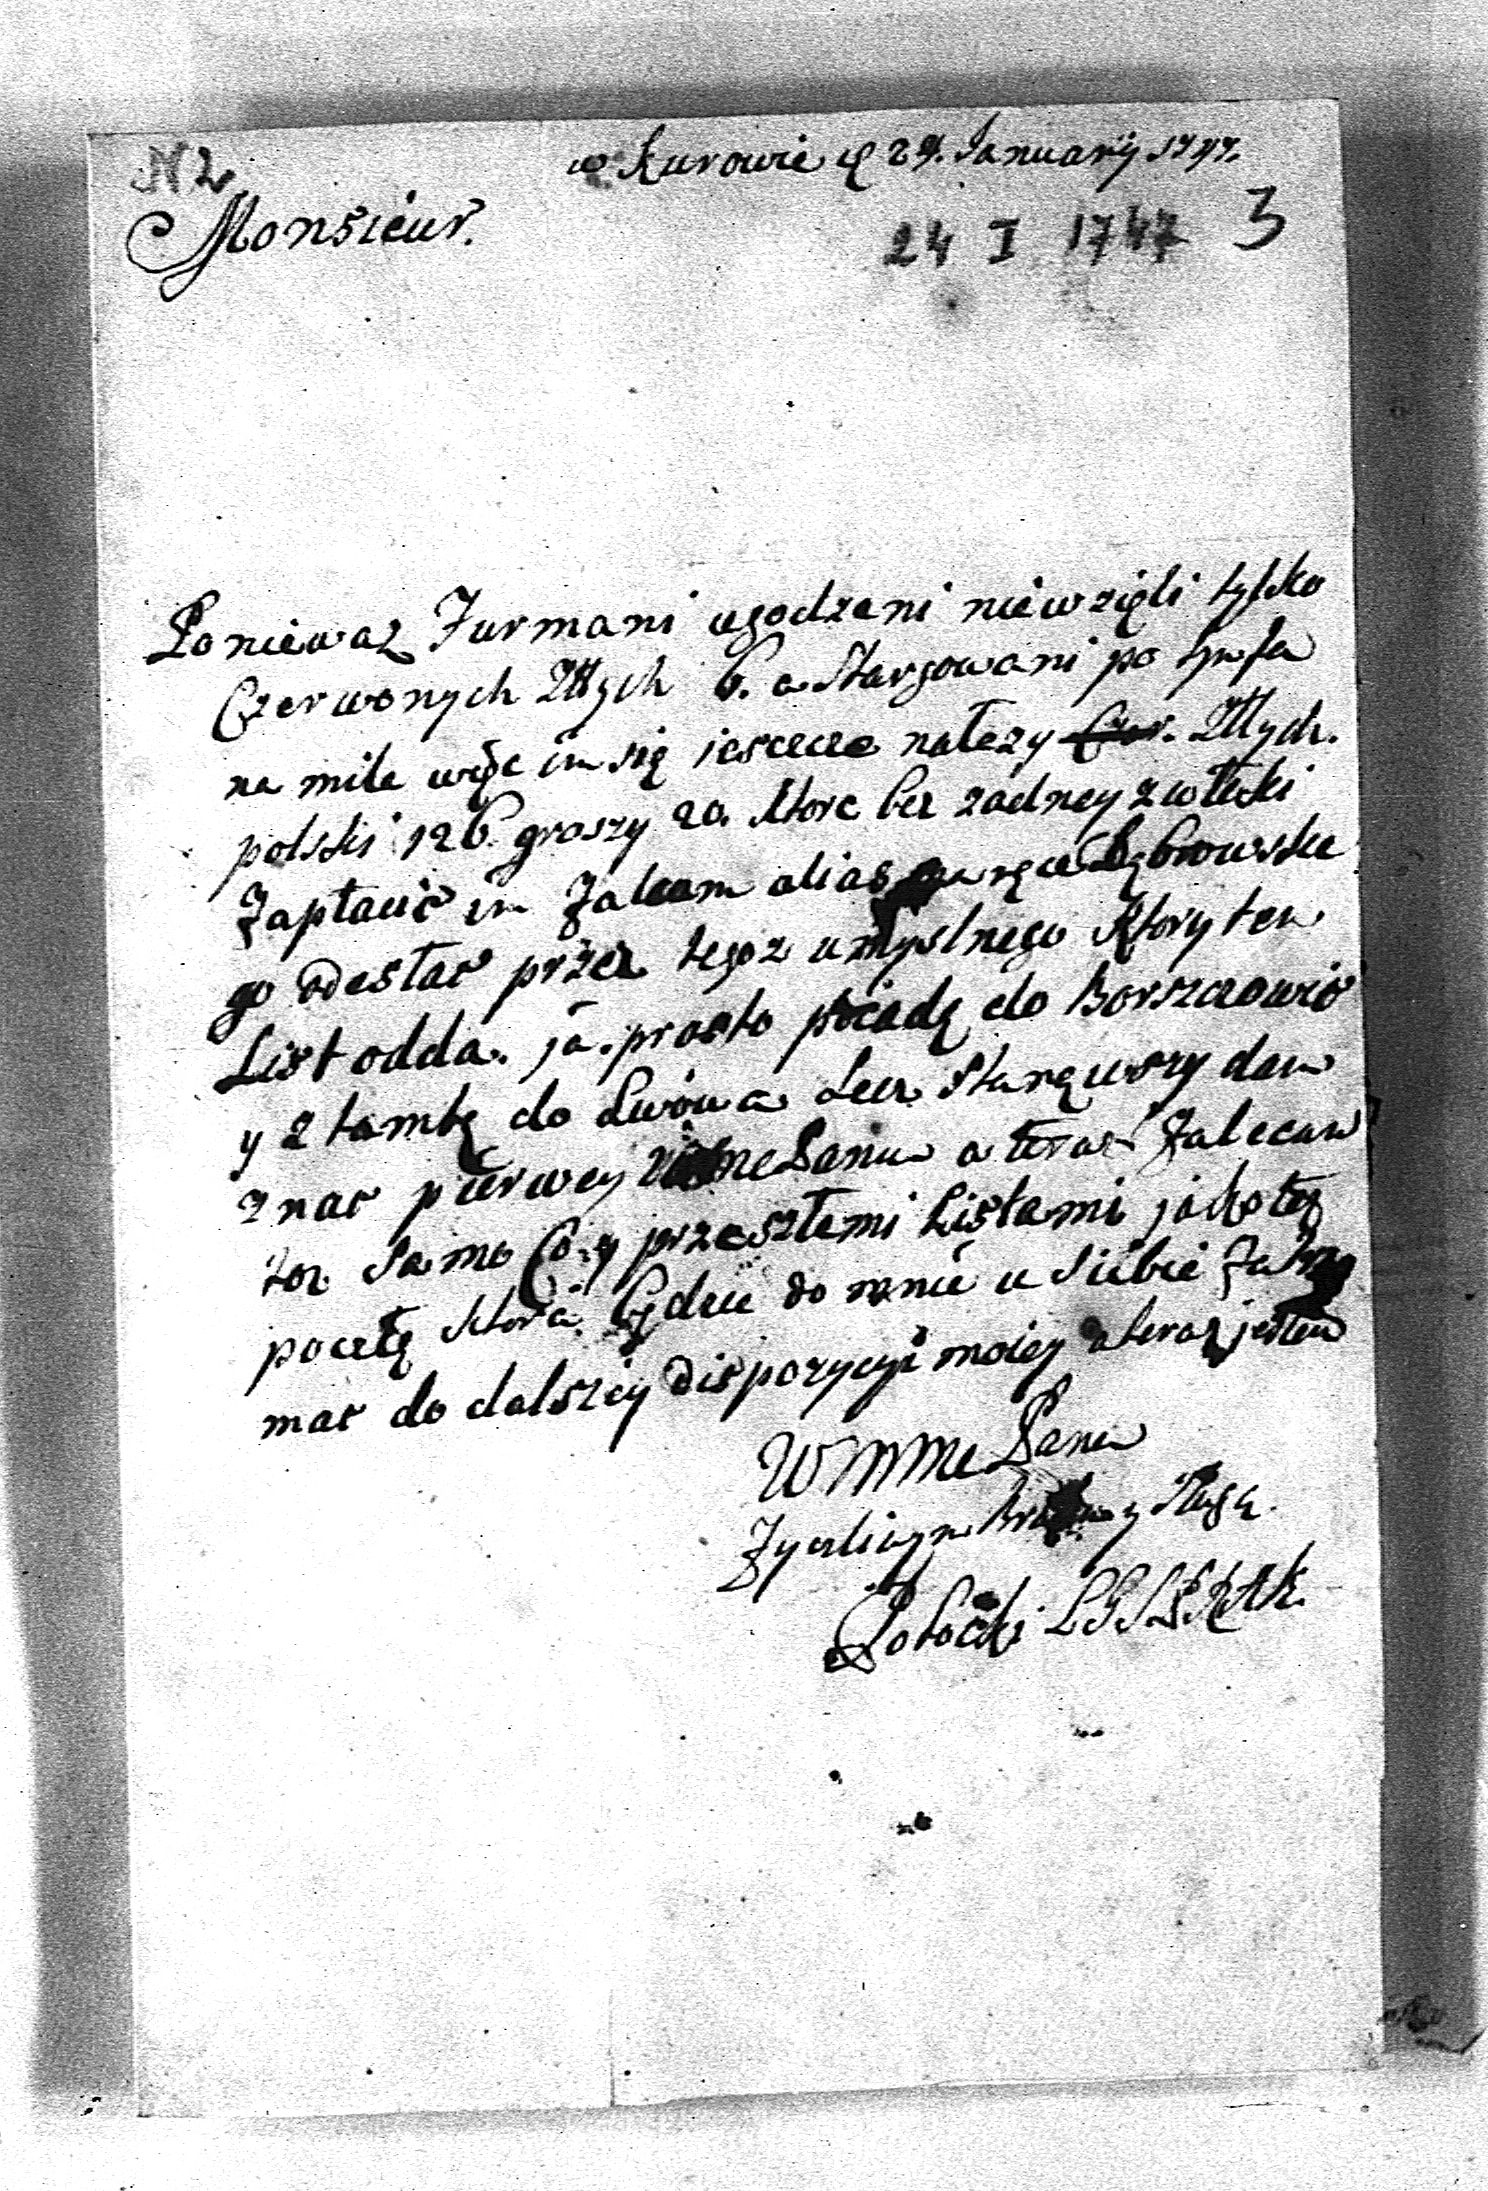 N 2
w Kurowie d 24. January 1747.
Monsieur.
24 I 1747 3
Poniewaz Furmani ugodzeni niewzięli tylko
Czerwonych Złłtych 6. a Stargowani po tynfa
na mile więc im się ieszcze należy Czer. Złłtych.
polski 126 groszy 20. ktore bez zadney zwłoki
Zapłacić im Zalecam alias ręce Dąbrowskie
go odesłać przez tegoz umyslnego ktory ten
List odda. ja. prosto poiadę do Borszczowic
y ztamtą do Lwowa Lecz stanąwszy dam
znac pierwey Panu a teraz Zalecam
toz samo Co y przeszłemi Listami jako też
pocztę ktora będzie do mnie u siebie
mac do dalszey dispozycyi moiey a teraz jestem
WMMC Pana
Zyczliwym Bratem y Sługą.
Potocki